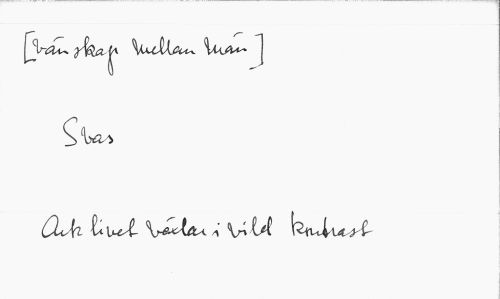 [Vänskap mellan män]
Svas
Ack livet växlar i vild kontrast